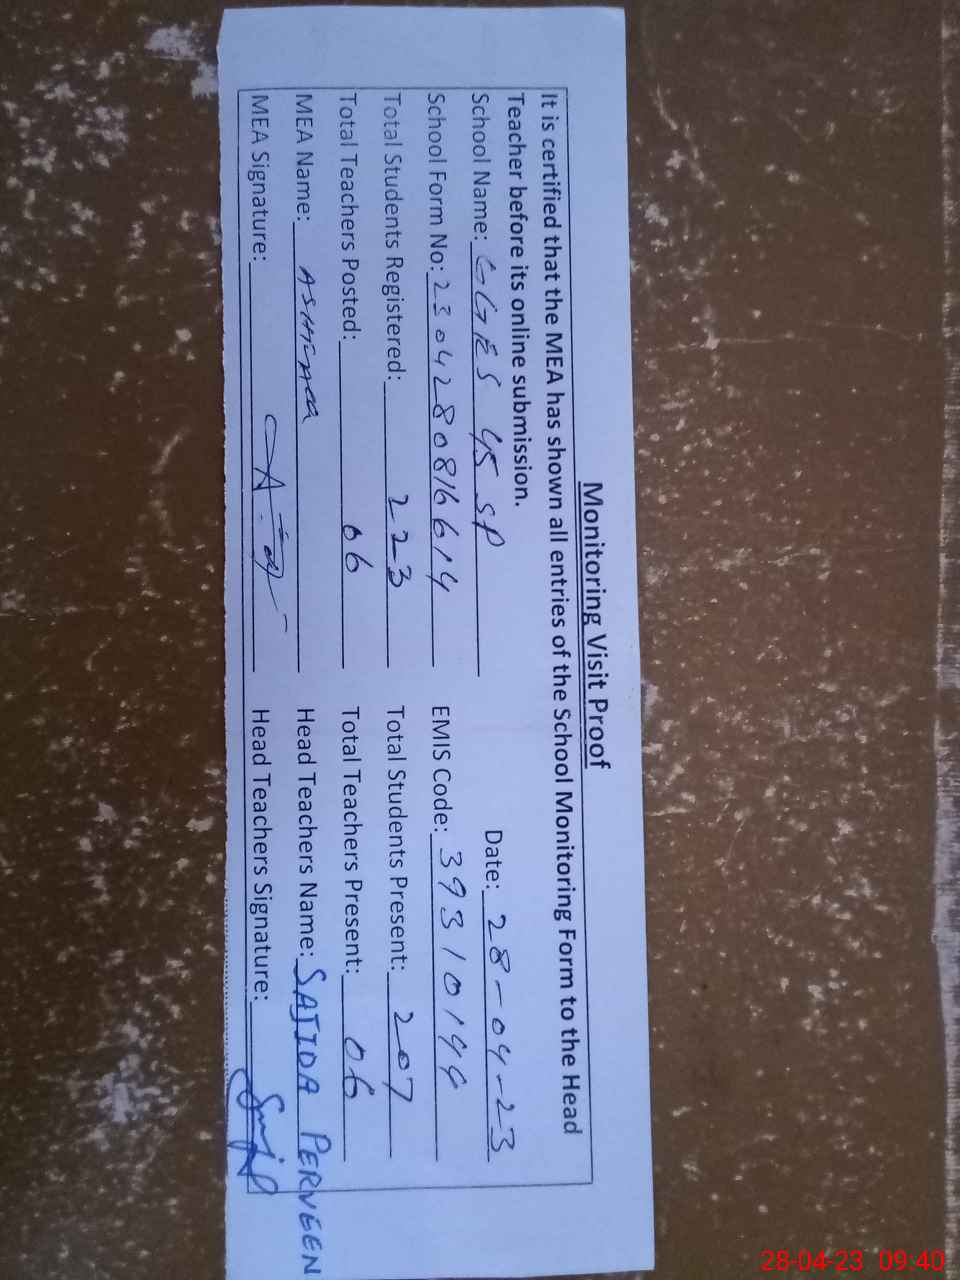 Monitoring Visit Proof
It is certified that the MEA has shown all entries of the School Monitoring Form to the Head
Teacher before its online submission.
School Name: GGES 45 SP Date: 28-04-23
School Form No: 2304280816614 EMIS Code: 39310144
Total Students Registered: 223 Total Students Present: 207
Total Teachers Posted: 06 Total Teachers Present: 06
MEA Name: Head Teachers Name: SAJIDA PERVEEN
MEA Signature: Head Teachers Signature:
28-04-23 09:40